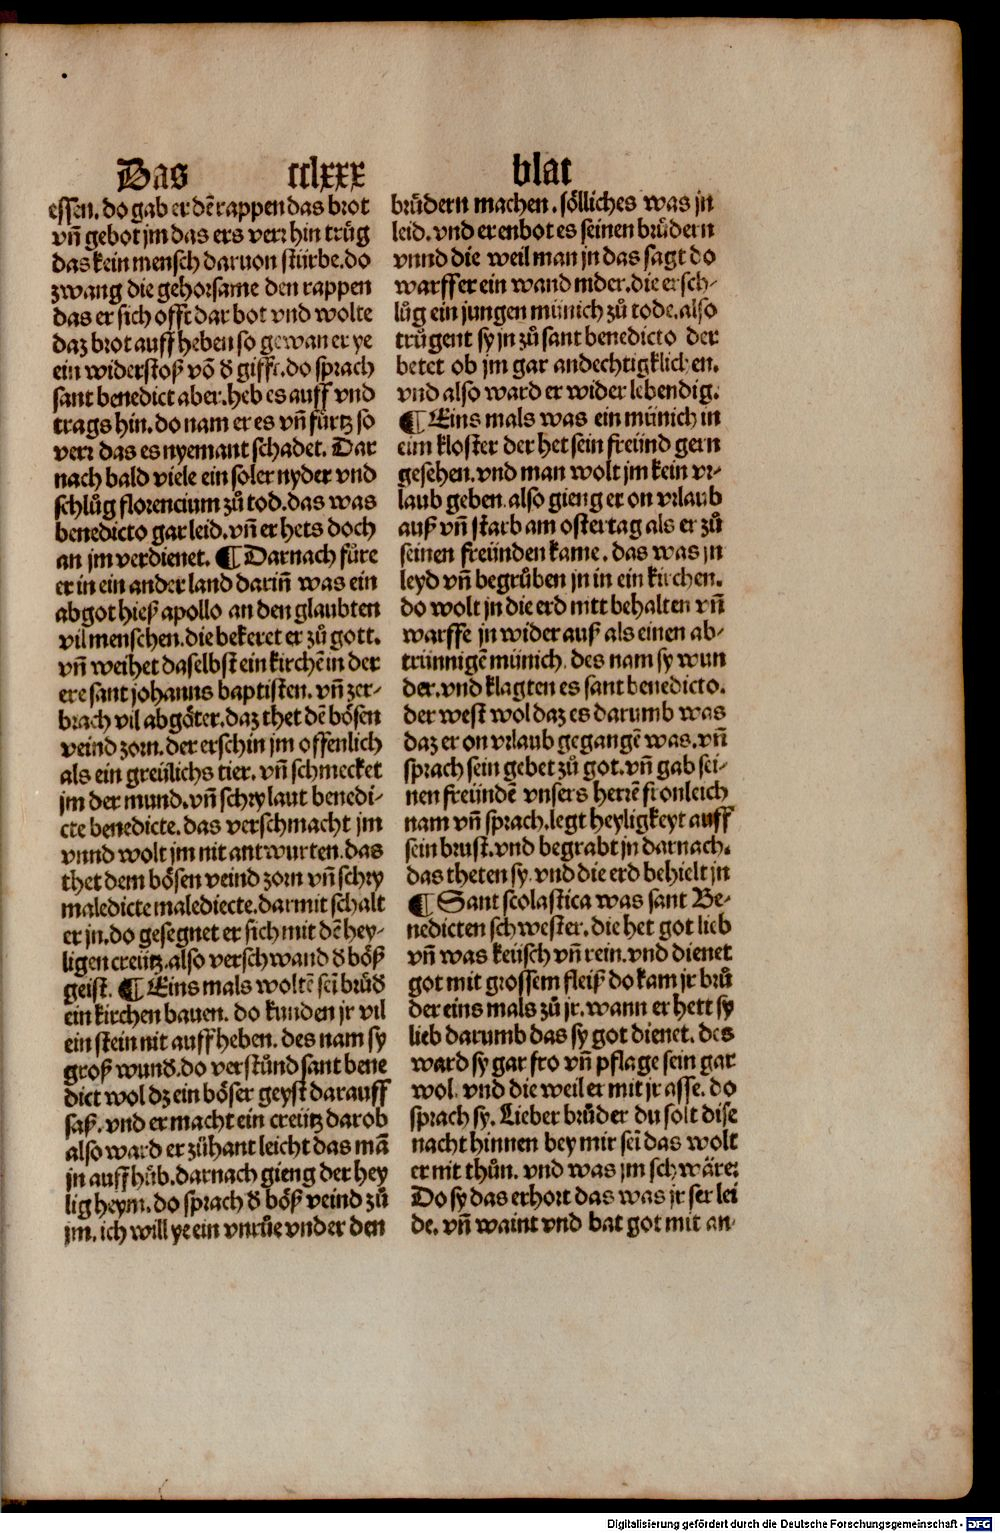 Das cclxxx blat
essen. do gab er dē rappen das brot
vnd̄ gebot jm das ers verr hin trůg
das kein mensch daruon stürbe. do
zwang die gehorsame den rappen
das er sich offt dar bot vnd wolte
daz brot auff heben so gewan er ye
ein widerstoß vō d giffr. do sprach
sant benedict aber. heb es auff vnd
trags hin. do nam er es vn̄ fůrtz so
verr das es nyemant schadet. Dar
nach bald viele ein soler nyder vnd
schlůg florencium zů tod. das was
benedicto gar leid. vn̄ er hets doch
an jm verdienet. ¶ Darnach fůre
er in ein ander land dariñ was ein
abgot hieß apollo an den glaubten
vil menschen. die bekeret er zů gott.
vn̄ weihet daselbst ein kirchē in der
ere sant johanns baptisten. vn̄ zer-
brach vil abgöter. daz thet dē bösen
veind zorn. der erschin jm offenlich
als ein greüslichs tier. vn̄ schmecket
jm der mund. vn̄ schry laut benedi-
cte benedicte. das verschmacht jm
vnnd wolt jm nit antwurten. das
thet dem bösen veind zorn vn̄ schry
maledicte malediecte. darmit schalt
er jn. do gesegnet er sich mit dē hey-
ligen creütz. also verschwand d böß
geist. ¶ Eins mals woltē sei brůd
ein kirchen bauen. do kunden jr vil
ein stein nit auff heben. des nam sy
groß wund. do verstůnd sant bene
dict wol dz ein böser geyst darauff
saß. vnd er macht ein creütz darob
also ward er zůhant leicht das mā
jn auff hůb. darnach gieng der hey
lig heym. do sprach d böß veind zů
jm. ich will ye ein vnrůe vnder den
brůdern machen. sölliches was jn
leid. vnd er enbot es seinen brůdern
vnnd die weil man jn das sagt do
warff er ein wand nider. die ersch-
lůg ein jungen münich zů tode. also
trůgent sy jn zů sant benedicto der
betet ob jm gar andechtigklichen.
vnd also ward er wider lebendig.
¶ Eins mals was ein münich in
eim kloster der het sein freünd gern
gesehen. vnd man wolt jm kein vr-
laub geben. also gieng er on vrlaub
auß vn̄ starb am ostertag als er zů
seinen freünden kame. das was jn
leyd vn̄ begrůben jn in ein kirchen.
do wolt jn die erd nitt behalten vn̄
warffe jn wider auß als einen ab-
trünnigē münich. des nam sy wun
der. vnd klagten es sant benedicto.
der west wol daz es darumb was
daz er on vrlaub gegangē was. vn̄
sprach sein gebet zů got. vn̄ gab sei-
nen freündē vnsers herrē fronleich
nam vn̄ sprach. legt heyligkeyt auff
sein brust. vnd begrabt jn darnach.
das theten sy. vnd die erd behielt jn
¶ Sant scolastica was sant Be-
nedicten schwester. die het got lieb
vn̄ was keüsch vn̄ rein. vnd dienet
got mit grossem fleiß do kam jr brů
der eins mals zů jr. wann er hett sy
lieb darumb das sy got dienet. des
ward sy gar fro vn̄ pflage sein gar
wol. vnd die weil er mit jr asse. do
sprach sy. Lieber brůder du solt dise
nacht hinnen bey mir sei das wolt
er nit thůn. vnd was jm schwäre:
Do sy das erhort das was jr ser lei
de. vn̄ waint vnd bat got mit an-
Digitalisierung gefördert durch die Deutsche Forschungsgemeinschaft - DFG